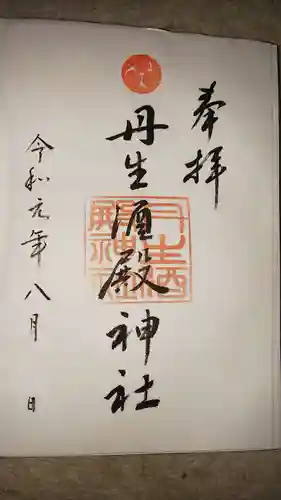 奉拝
丹生酒殿神社
丹生酒殿神社
令和元年八月 日